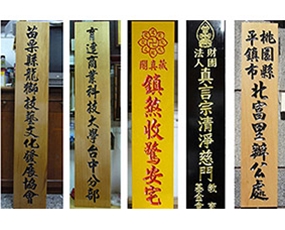 苗栗縣龍獅技藝文化發展協會
育達商業科技大學台中分部
葳真閣
鎮煞收驚安宅
財團
法人
真言宗清淨慈門
教育
基金會
桃園縣
平鎮市
北富里辦公處